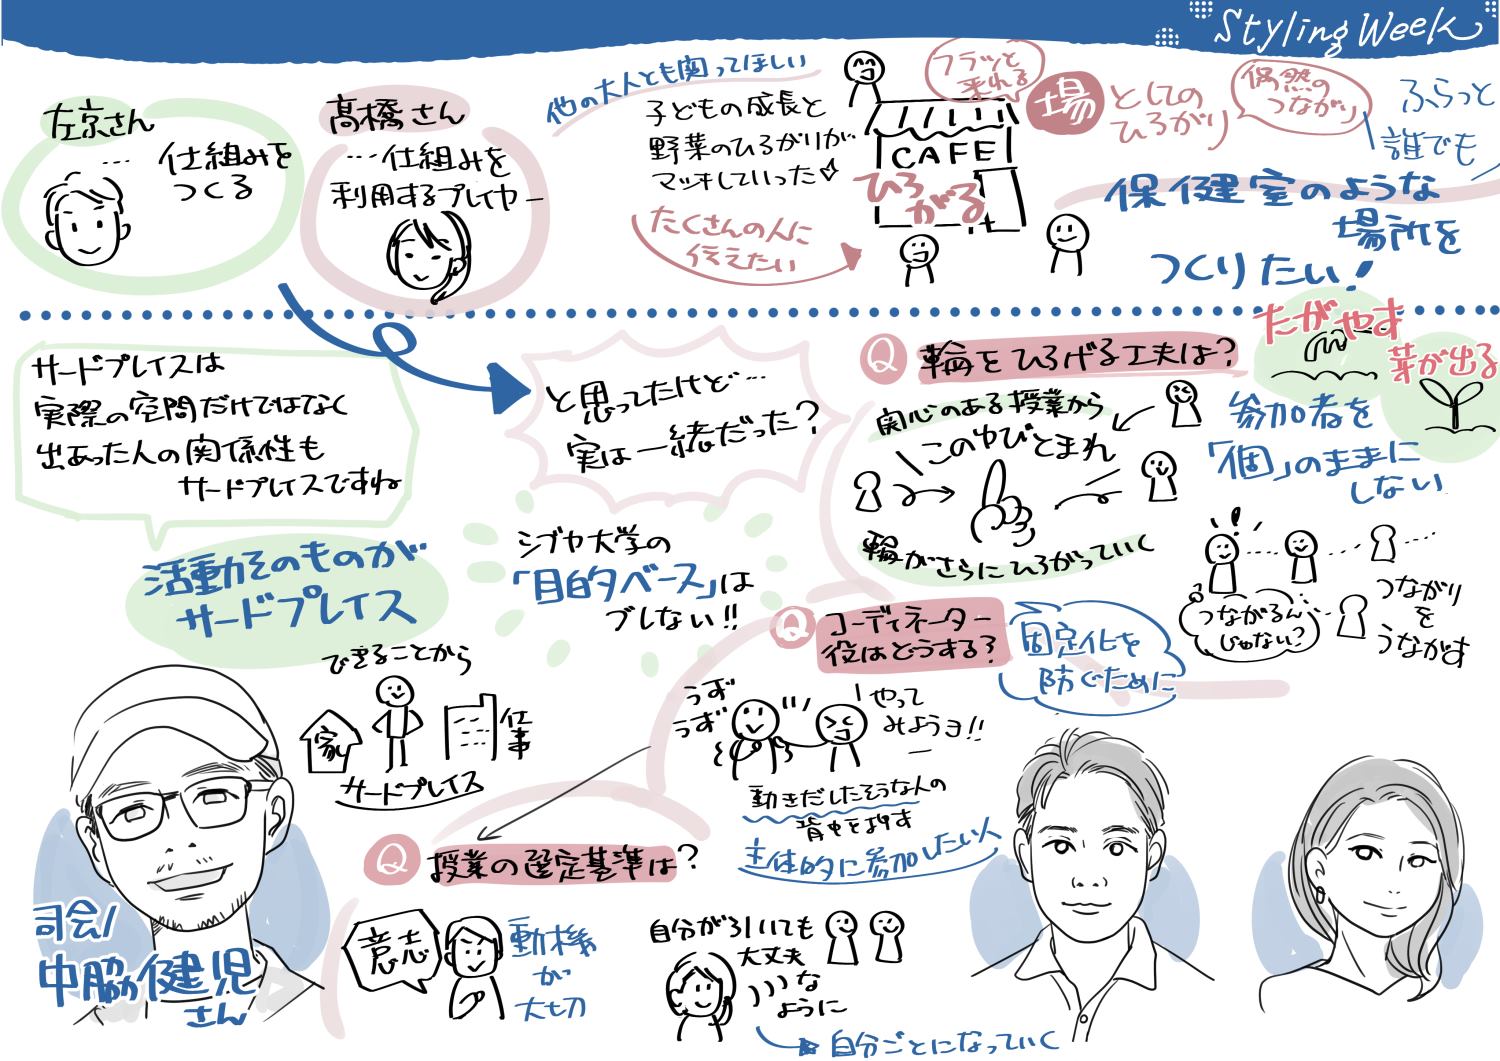 Styling Week
左京さん
… 仕組みを
つくる
髙橋さん
…仕組みを
利用するプレイヤー
他の大人とも関ってほしい
子どもの成長と
野菜のひろがりが
マッチしていった
たくさんの人に
伝えたい
フラッと
来れる
CAFE
ひろ
がる
場
としての
ひろがり
偶然の
つながり
ふらっと
誰でも
保健室のような
場所を
つくりたい!
サードプレイスは
実際の空間だけではなく
出あった人の関係性も
サードプレイスですね
活動そのものが
サードプレイス
できることから
家
仕事
サードプレイス
司会/
中脇健児
さん
と思ってたけど…
実は一緒だった?
シブヤ大学の
「目的ベース」は
ブレない!!
Q 輪をひろげる工夫は?
関心のある授業から
このゆびとまれ
輪がさらにひろがっていく
たがやす
芽が出る
参加者を
「個」のままに
しない
!
つながるん
じゃない?
つながり
を
うながす
Q コーディネーター
役はどうする?
固定化を
防ぐために
うず
うず
やって
みようヨ!!
動きだしたそうな人の
背中を押す
主体的に参加したい人
Q 授業の選定基準は?
意志
動機
が
大切
自分が引いても
大丈夫
な
ように
自分ごとになっていく